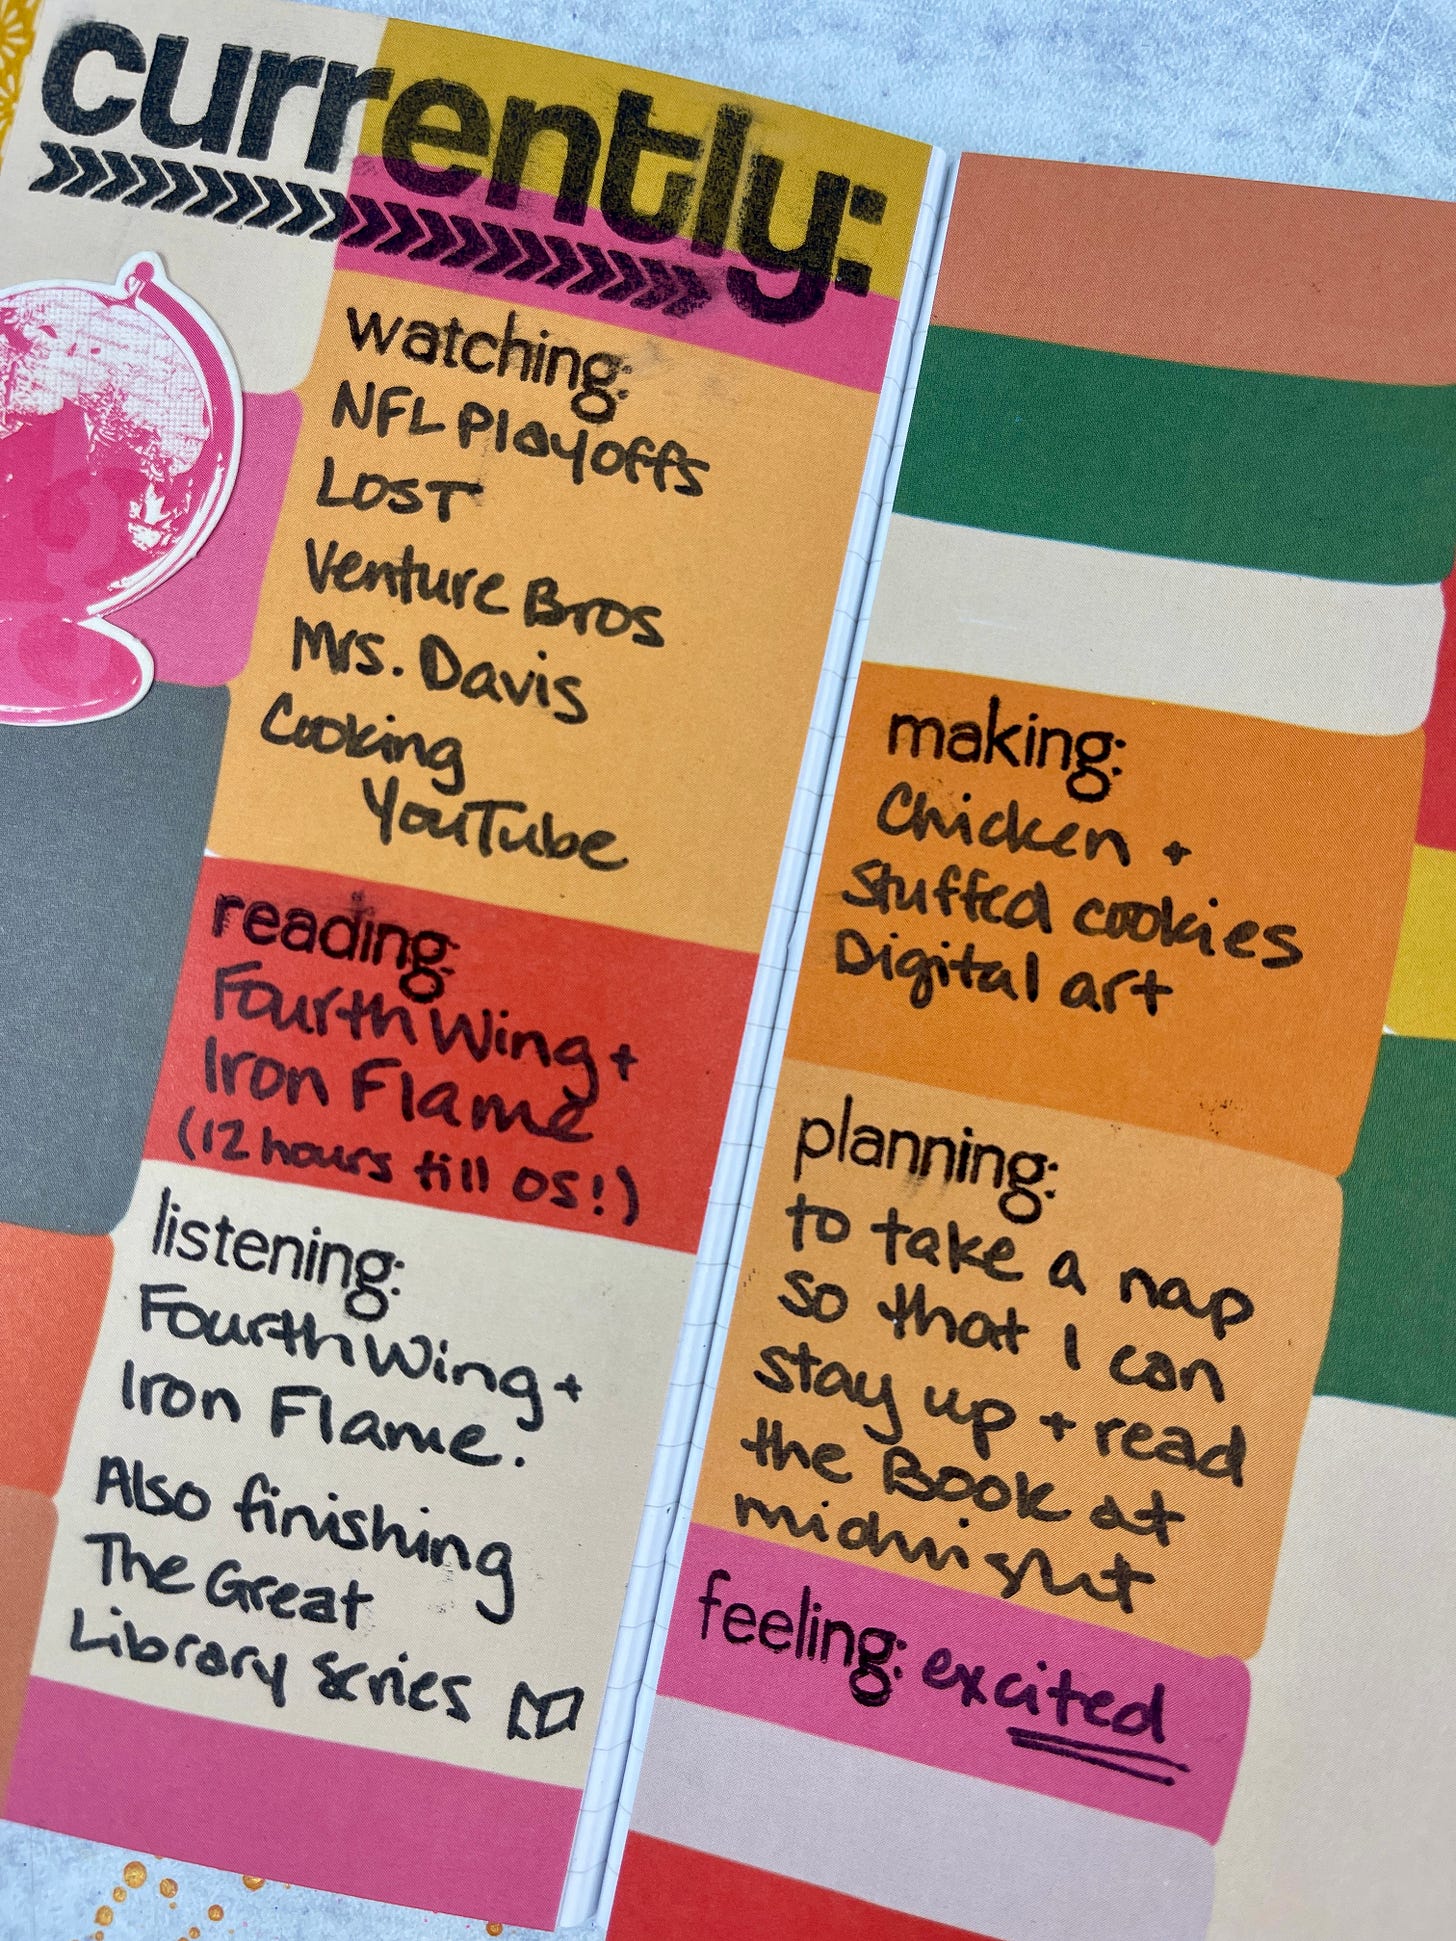 currently:
watching:
NFL Playoffs
LOST
Venture Bros
Mrs. Davis
Cooking
YouTube
reading:
Fourth Wing +
Iron Flame
(12 hours till OS!)
listening:
Fourth Wing +
Iron Flame.
Also finishing
The Great
Library series
making:
Chicken +
Stuffed cookies
Digital art
planning:
to take a nap
so that I can
stay up + read
the Book at
midnight
feeling: excited